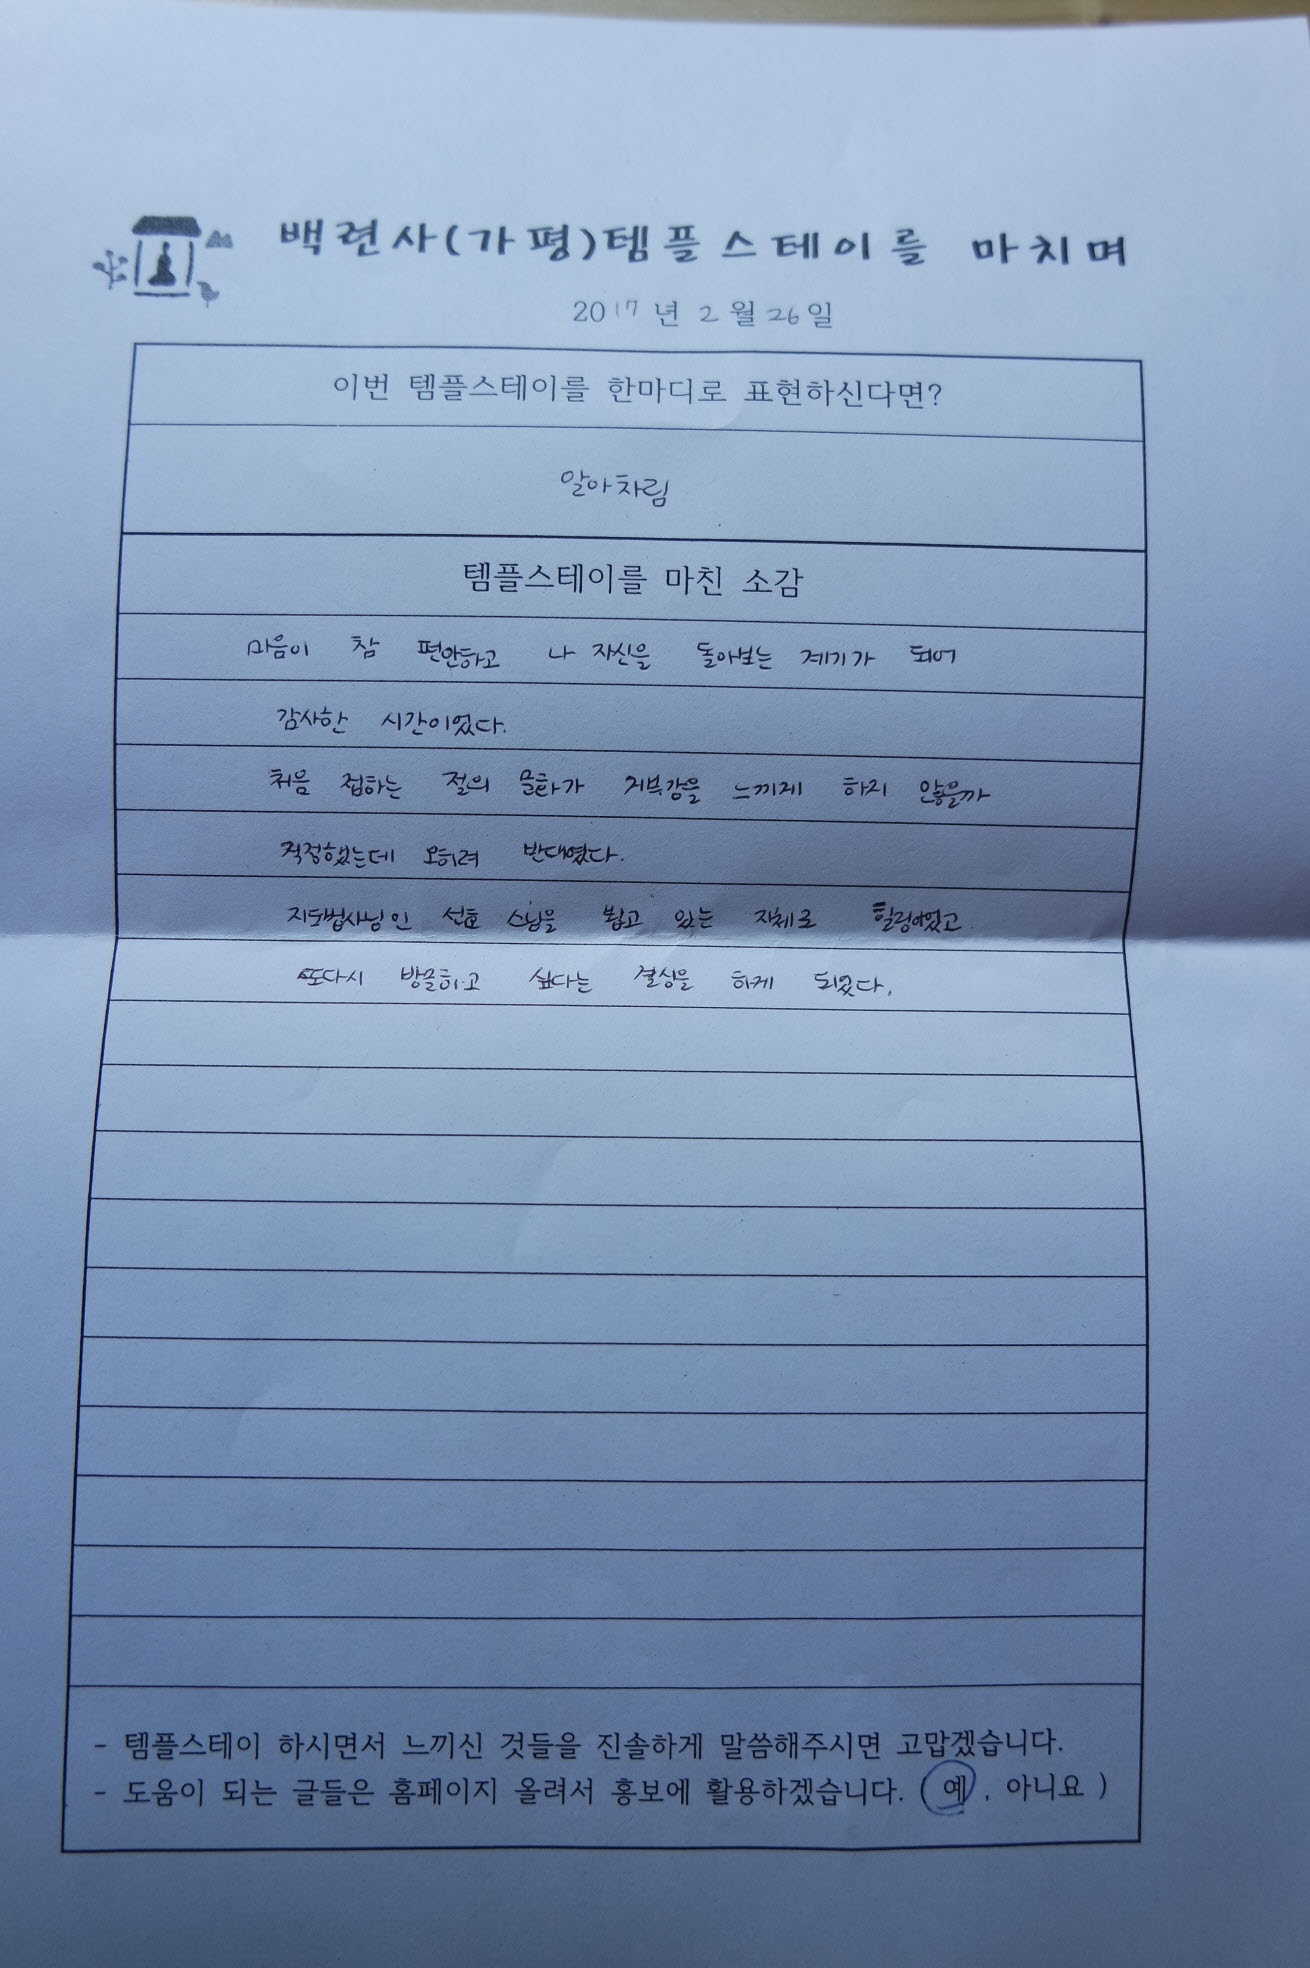 백련사(가평)템플스테이를 마치며
2017년 2월 26일
이번 템플스테이를 한마디로 표현하신다면?
알아차림
템플스테이를 마친 소감
마음이 참 편안하고 나 자신을 돌아보는 계기가 되어
감사한 시간이었다.
처음 접하는 절의 문화가 거부감을 느끼게 하지 않을까
걱정했는데 오히려 반대였다.
지도법사님인 선효 스님을 뵙고 있는 자체로 힐링이었고
또다시 방문하고 싶다는 결심을 하게 되었다.
- 템플스테이 하시면서 느끼신 것들을 진솔하게 말씀해주시면 고맙겠습니다.
- 도움이 되는 글들은 홈페이지 올려서 홍보에 활용하겠습니다. ( 예 , 아니요 )